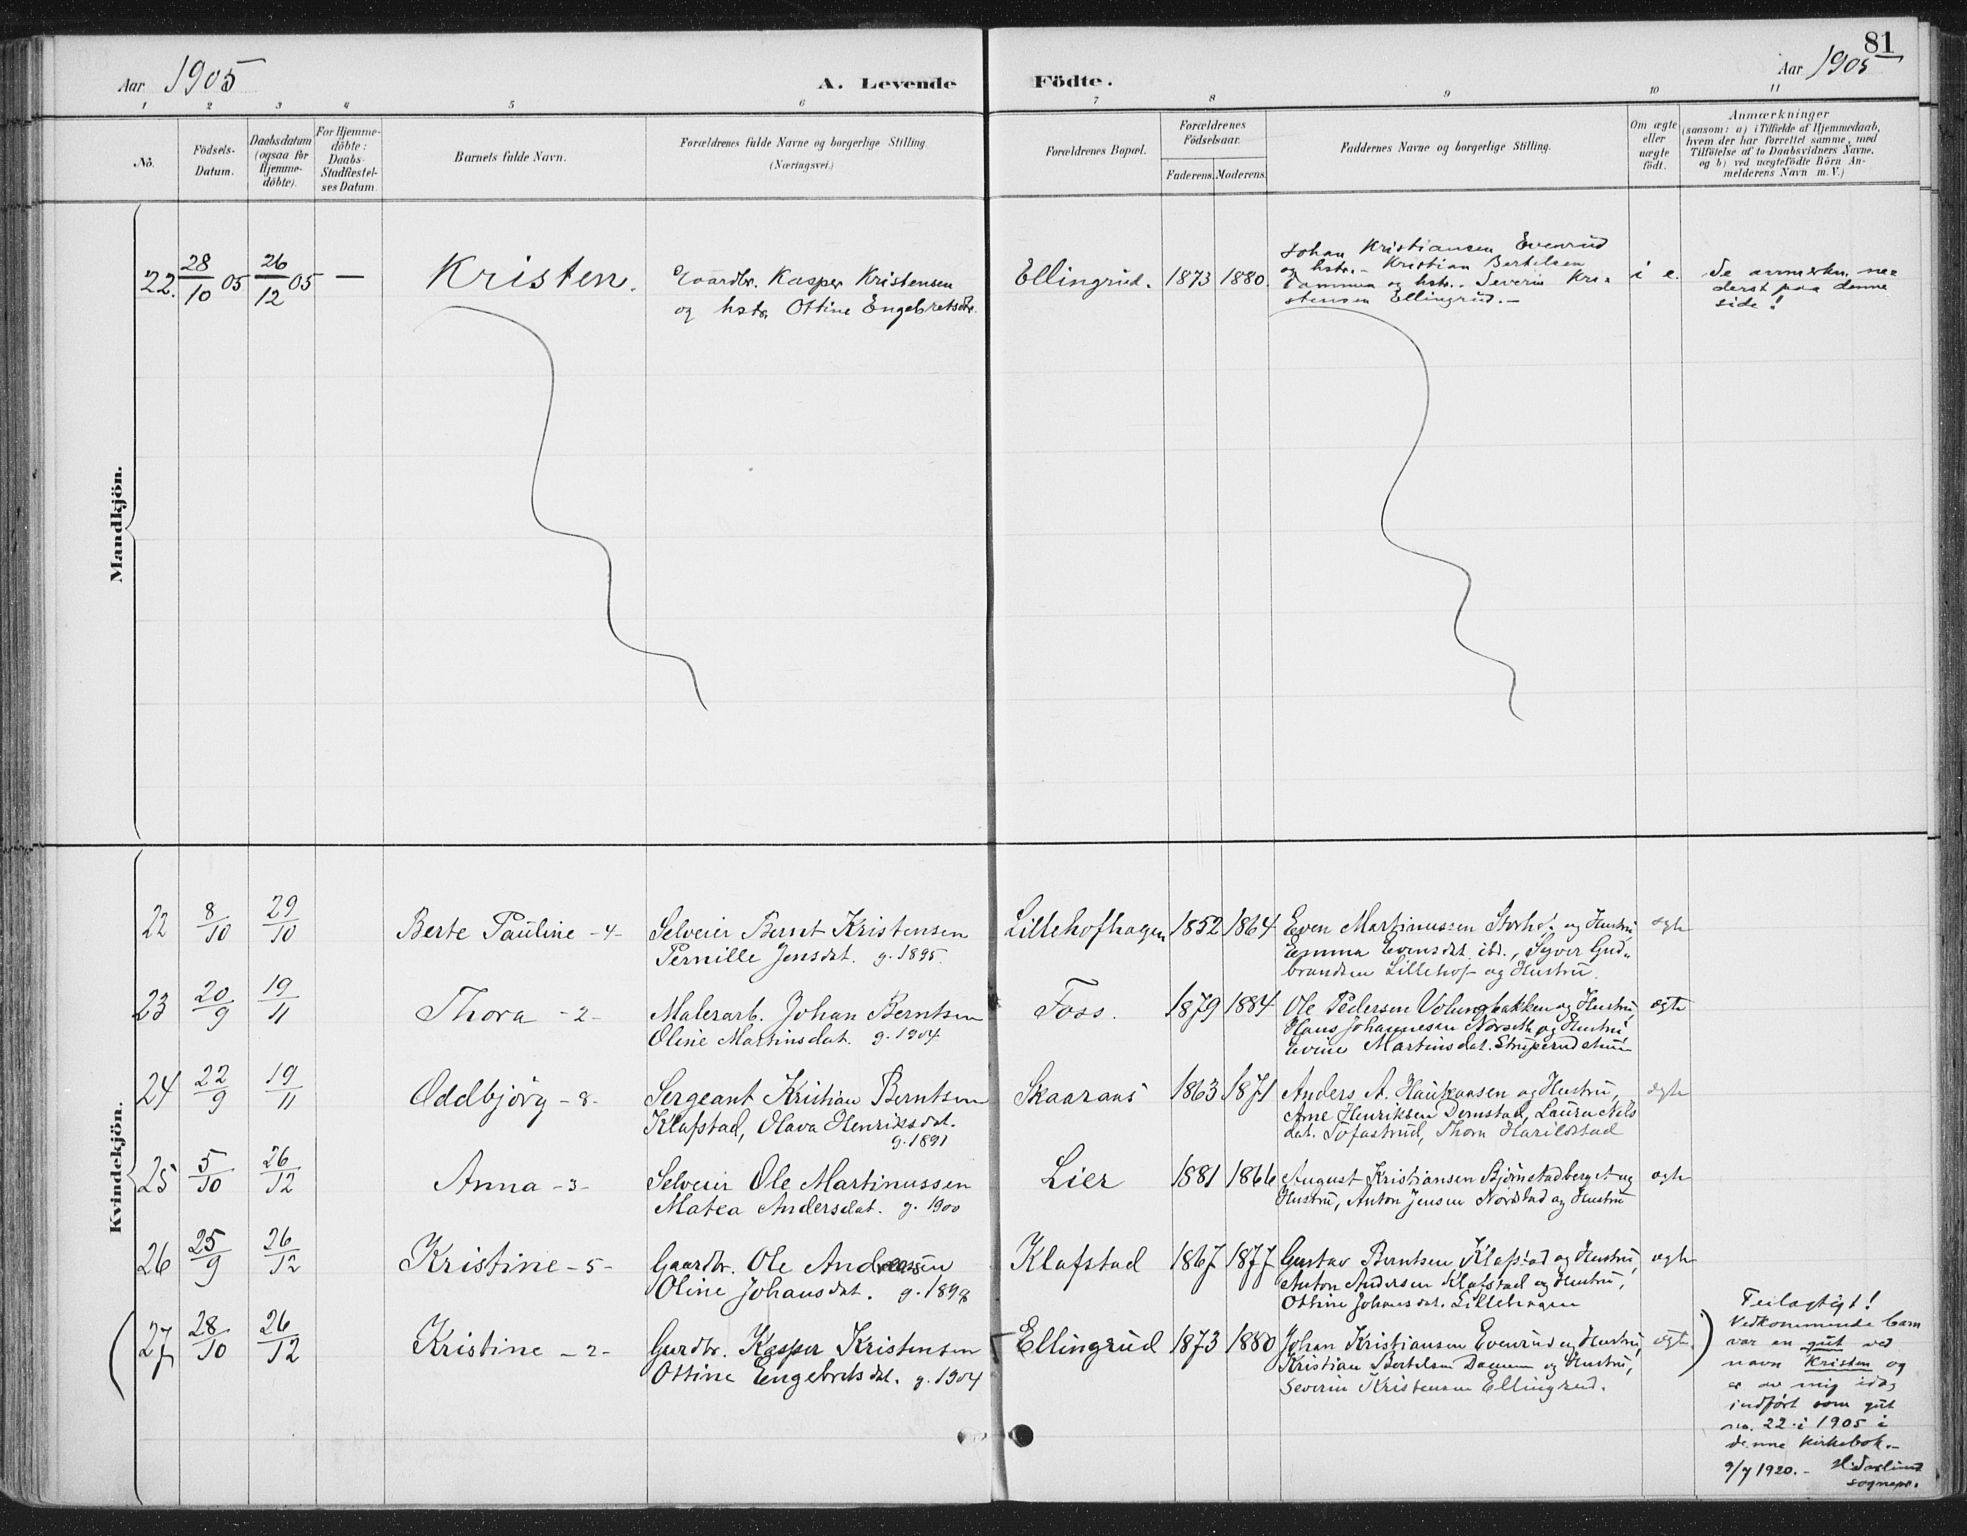 81
Aar 1905
A. Levende
Födte.
Aar 1905
1 2 3 4 5 6 7 8 9 10 11
No.
Födsels-
Datum.
Daabsdatum
(ogsaa for
Hjemme-
döbte).
For Hjemme-
döbte:
Daabs-
Stadfæstel-
ses Datum.
Barnets fulde Navn.
Forældrenes fulde Navne og borgerlige Stilling
(Næringsvei.)
Forældrenes Bopæl.
Forældrenes
Födselsaar.
Faderens. Moderens.
Faddernes Navne og borgerlige Stilling.
Om ægte
eller
uægte
födt.
Anmærkninger
(saasom: a) i Tilfælde af Hjemmedaab,
hvem der har forrettet samme, med
Tilföielse af to Daabsvidners Navne,
og b) ved uægtefödte Börn An-
melderens Navn m. V.)
Mandkjön.
22. 28/10 05 26/12 05 —
Kristen.
Gaardbr. Kasper Kristensen
og hstr. Ottine Engebretsdtr.
Ellingrud. 1873 1880.
Johan Kristiansen Evenrud
og hstr. - Kristian Bertelsen
Damman og hstr. - Severin Kri-
stensen Ellingrud. -
i e.
Se anmerkn. ne-
derst paa denne
side!
Kvindekjön.
22 8/10 29/10
Berte Pauline - 4 -
Selveier Bernt Kristensen
Pernille Jensdat. g. 1895.
Lillehofhagen 1852 1864
Even Martinussen Storhof og Hustru,
Emma Evensdat. ibd., Syver Gud-
brandsen Lillehof og Hustru.
ægte
23 20/9 19/11
Thora - 2 -
Malerarb. Johan Berntsen
Oline Martinsdat. g. 1904
Foss. 1879 1884
Ole Pedersen Volungbakken og Hustru,
Hans Johannesen Norseth og Hustru,
Evine Martinsdat. Struperudstuen
ægte
24 22/9 19/11
Oddbjörg - 8 -
Sergeant Kristian Berntsen
Klafstad, Olava Henriksdat.
g. 1891
Skaaraas 1863 1871
Anders A. Haukaasen og Hustru,
Arne Henriksen Dernstad, Laura Nils
dat. Tofastrud, Thora Harildstad
ægte
25 5/10 26/12
Anna - 3 -
Selveier Ole Martinussen
Matea Andersdat. g. 1900
Lier 1881 1866
August Kristiansen Björnstadberget og
Hustru, Anton Jensen Nordstad og Hustru
ægte
26 25/9 26/12
Kristine - 5 -
Gaardbr. Ole Andreassen
Oline Johansdat. g. 1898
Klafstad 1867 1877
Gustav Berntsen Klafstad og Hustru,
Anton Andersen Klafstad og Hustru,
Ottine Johansdat. Lillehagen
ægte
27 28/10 26/12
Kristine - 2 -
Gardbr. Kasper Kristensen
Ottine Engebretsdat. g. 1904
Ellingrud 1873 1880
Johan Kristiansen Evenrud og Hustru,
Kristian Bertelsen Damman og Hustru,
Severin Kristensen Ellingrud.
ægte
Feilagtigt!
Vedkommende barn
var en gut ved
navn Kristen og
er av mig idag
indført som gut
no. 22 i 1905 i
denne kirkebok. -
9/7 1920. -
sognepr.